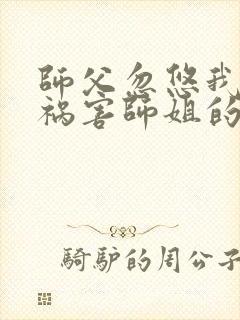 師父忽悠我
禍害師姐的
騎驢的周公子